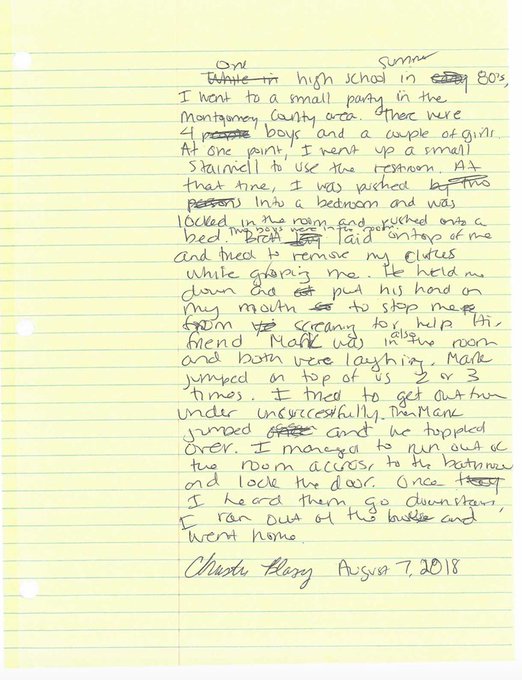 One summer
While in high school in early 80's,
I went to a small party in the
Montgomery County area. There were
4 people boys and a couple of girls.
At one point, I went up a small
stairwell to use the restroom. At
that time, I was pushed by two
persons into a bedroom and was
locked in the room and pushed onto a
Two boys were in the room.
bed. Brett laid on top of me
and tried to remove my clothes
while groping me. He held me
down and put his hand on
my mouth to stop me
from screaming for help His
also
friend Mark was in the room
and both were laughing. Mark
jumped on top of us 2 or 3
times. I tried to get out from
under unsuccessfully. Then Mark
jumped and we toppled
over. I managed to run out of
the room across, to the bathroom
and lock the door. Once they
I heard them go downstairs,
I ran out of the house and
went home.
August 7, 2018